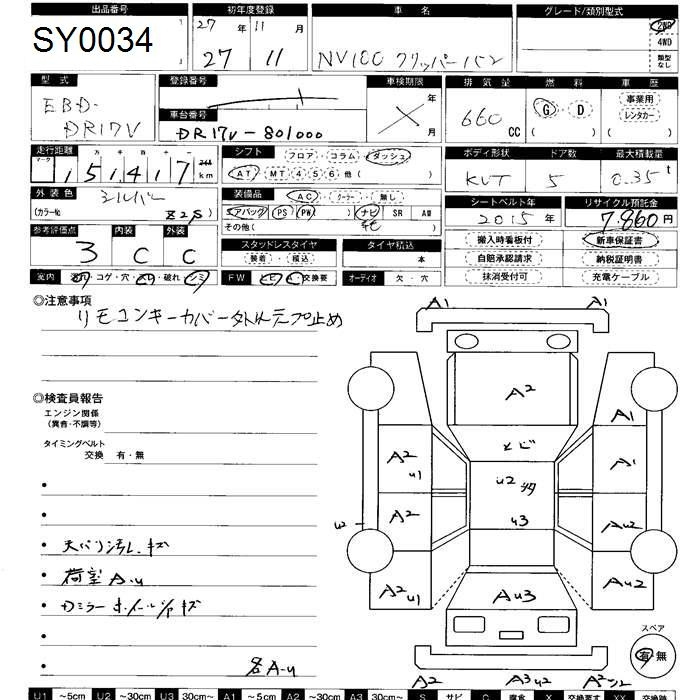 出品番号 初年度登録 車 名 グレード/類別型式
SY0034 27 年 11 月 2WD
27 11 NV100 クリッパーバン 4WD
類型なし
型 式 登録番号 車検期限 排 気 量 燃 料 車 歴
EBD- 年 G D 事業用
DR17V 車台番号 月 660 CC ( ) レンタカー
DR17V-801000 ( )
走行距離 シフト フロア・コラム・ダッシュ ボディ形状 ドア数 最大積載量
マーク 十 万 千 百 十 一 マイル
151417 km AT・MT( 4 5 6 他( ) KVT 5 0.35 t
外 装 色 シルバー 装備品 AC・クーラー・無し シートベルト年 リサイクル預託金
(カラーNo Z2S) エアバッグ PS PW ナビ SR AW 2015年 7,860円
その他( )
参考評価点 内装 外装 スタッドレスタイヤ タイヤ積込 搬入時看板付 新車保証書
3 C C 装着・積込 本 自賠承認請求 納税証明書
室内 コゲ・穴・破れ・シミ FW ・交換要 オーディオ 欠・穴 抹消受付可 充電ケーブル
◎注意事項
リモコンキーカバー外れテープ止め
◎検査員報告
エンジン関係
(異音・不調等)
タイミングベルト
交換 有・無
・天バリ汚レ、キズ
・荷室A.u
・Dミラー ホイールキャキズ
各A-u
A1 A1
A2
A1
とび
A2 u1 A1
u2 多
A2 u3 Au2
A2 u1 Au3 Au2
スペア
有 無
A2 A3 u2
U1 ～5cm U2 ～30cm U3 30cm～ A1 ～5cm A2 ～30cm A3 30cm～ S サビ C 腐食 X 交換要す XX 交換跡